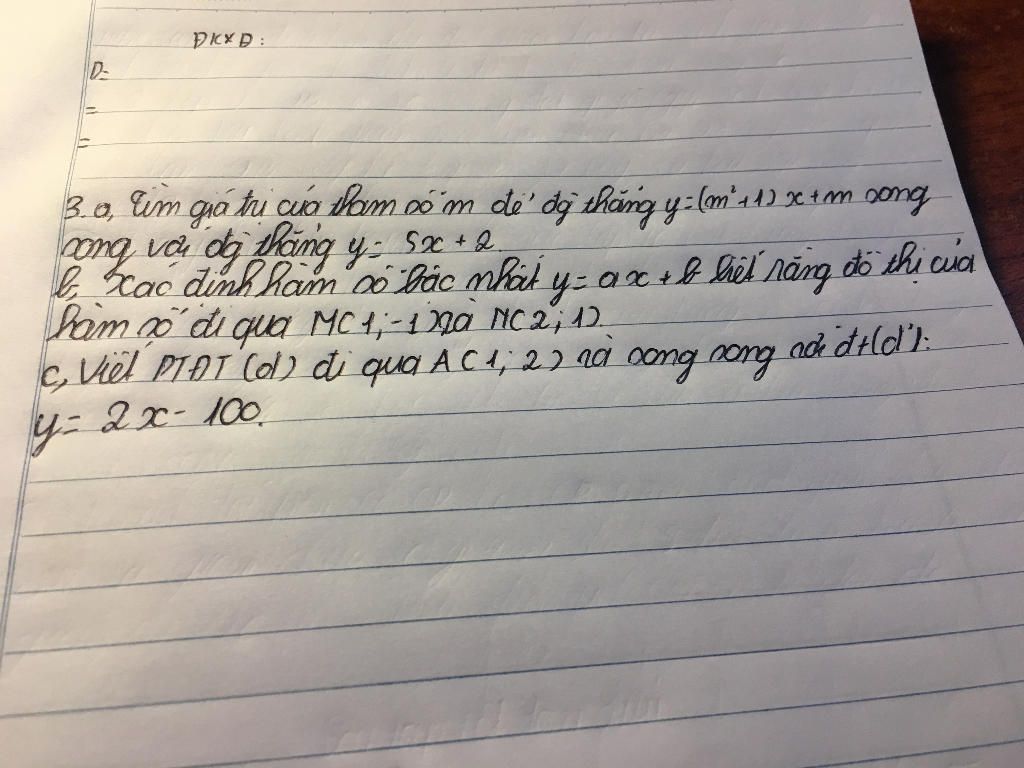 ĐKXĐ:
D=
=
=
3. a, Tìm giá trị của tham số m để đg thẳng y=(m²+1)x+m song
song với đg thẳng y= 5x+2
b, Xác định hàm số bậc nhất y=ax+b biết rằng đồ thị của
hàm số đi qua M(1;-1) và N(2;1)
c, Viết PTĐT (d) đi qua A(1;2) và song song với đt(d'):
y= 2x- 100.